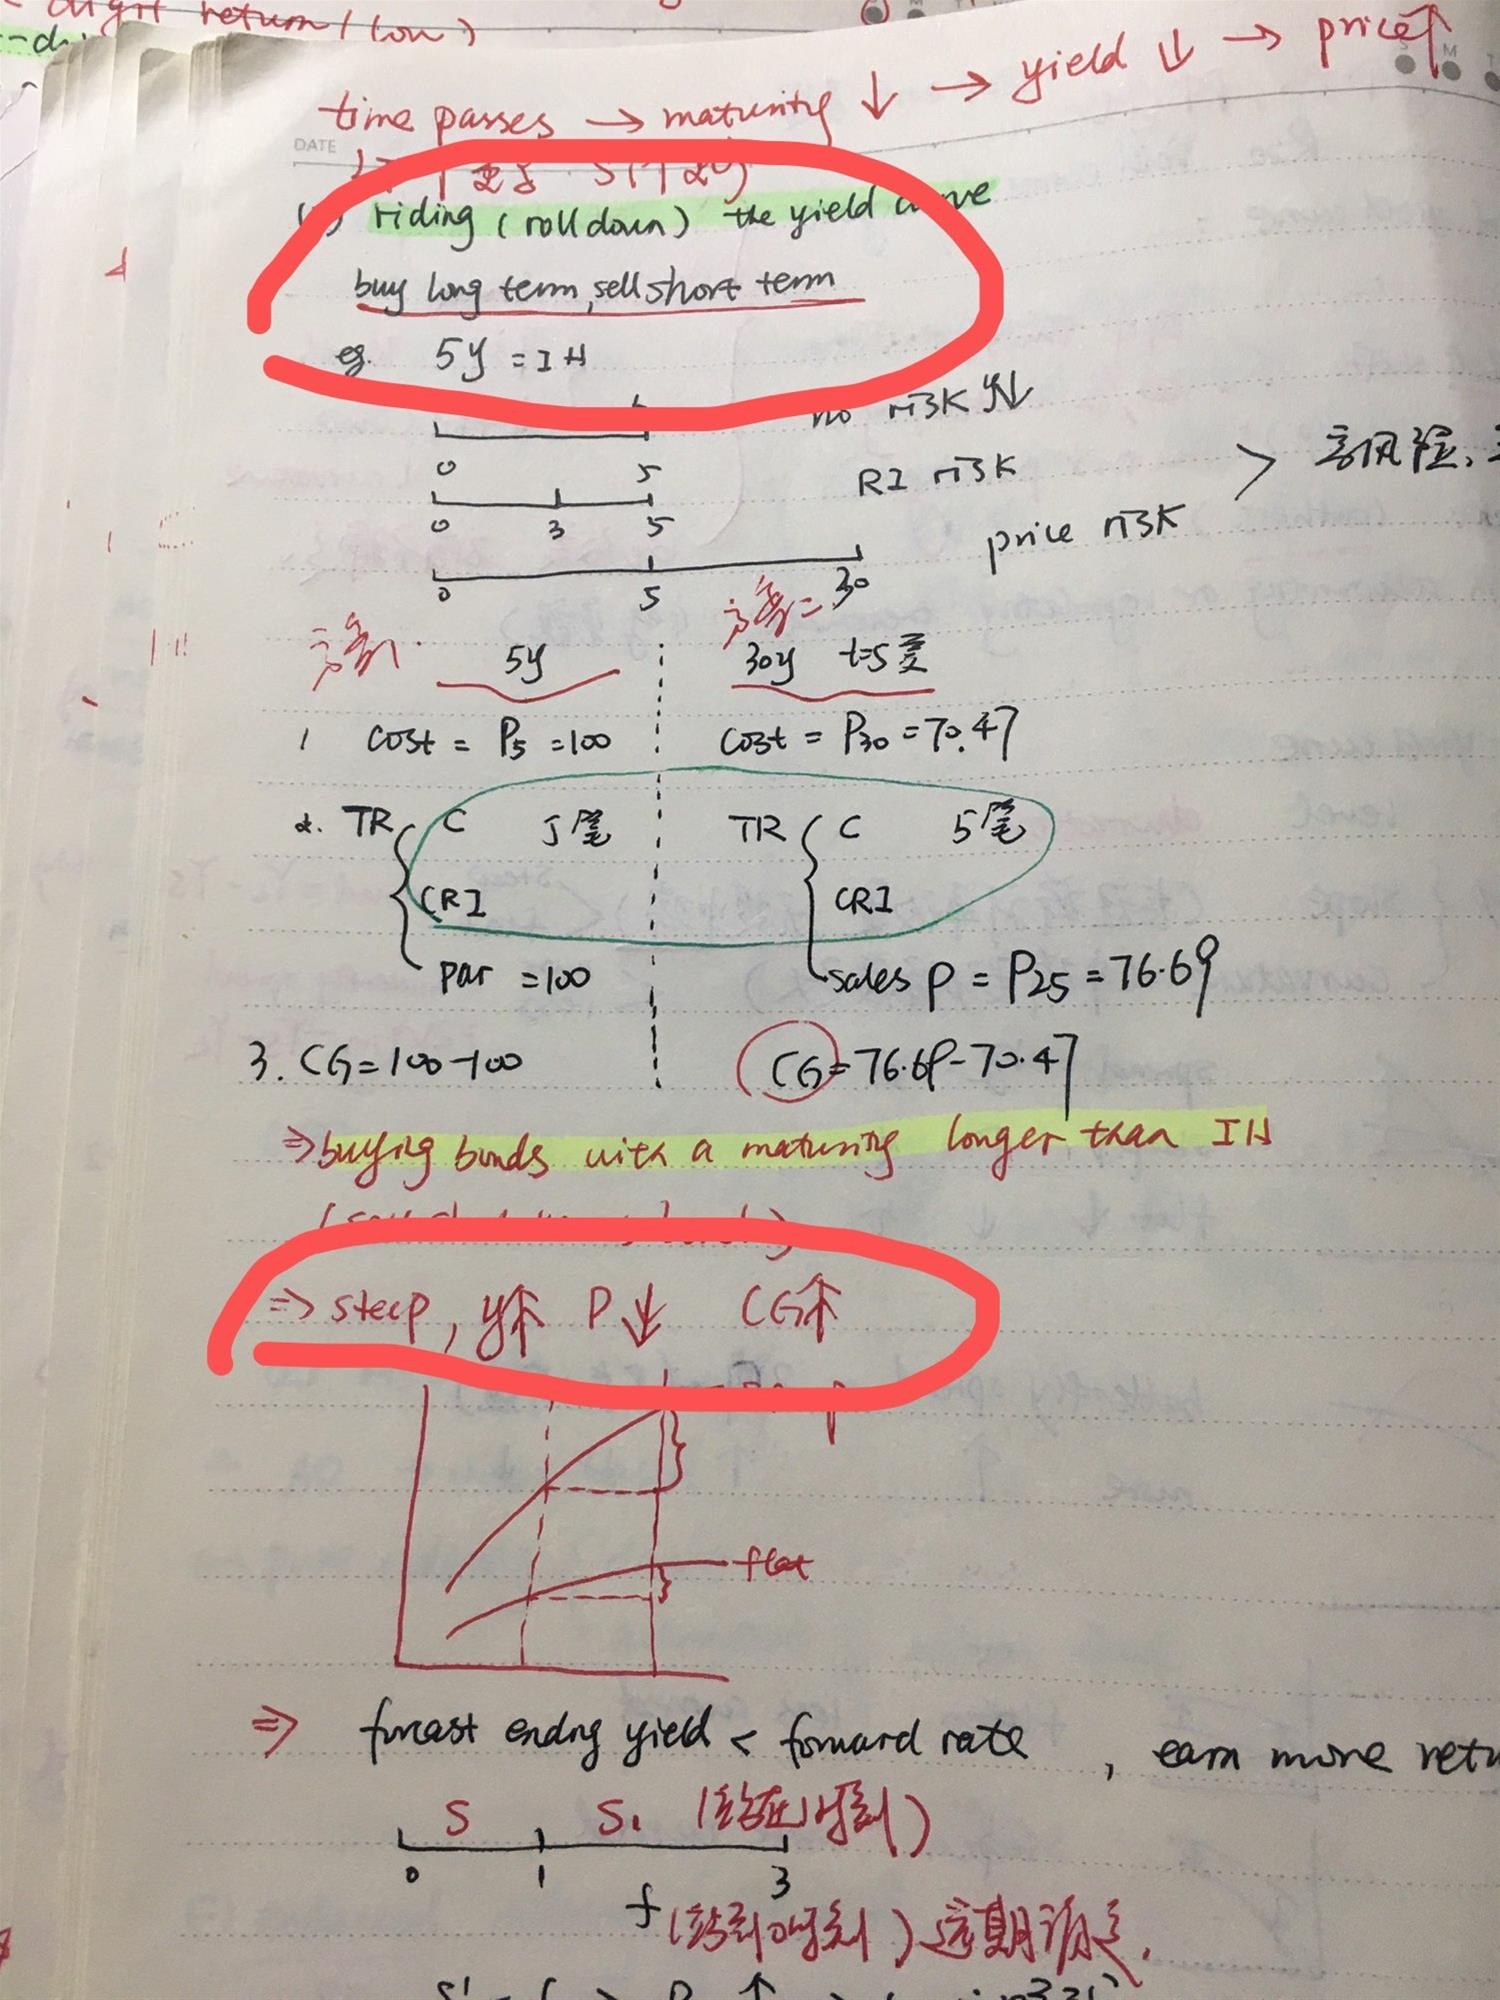 digit return (low)
time passes → maturity ↓ → yield ↓ → price↑
DATE
riding (roll down) the yield curve
buy long term, sell short term
eg. 5y = IH
no risk y↓
0 5 RI risk
0 3 5 price risk > 高风险,
0 5 30
方案一 5y 方案二 30y t=5卖
1 cost = P5 = 100 cost = P30 = 70.47
2. TR { C 5笔 TR { C 5笔
CRI CRI
par = 100 sales P = P25 = 76.69
3. CG = 100-100 CG = 76.69-70.47
⇒ buying bonds with a maturity longer than IH
⇒ steep, y↑ P↓ CG↑
flat
⇒ forcast ending yield < forward rate, earn more retu
S S1 (站在1时刻)
0 1 3
f (站到0时刻) 远期